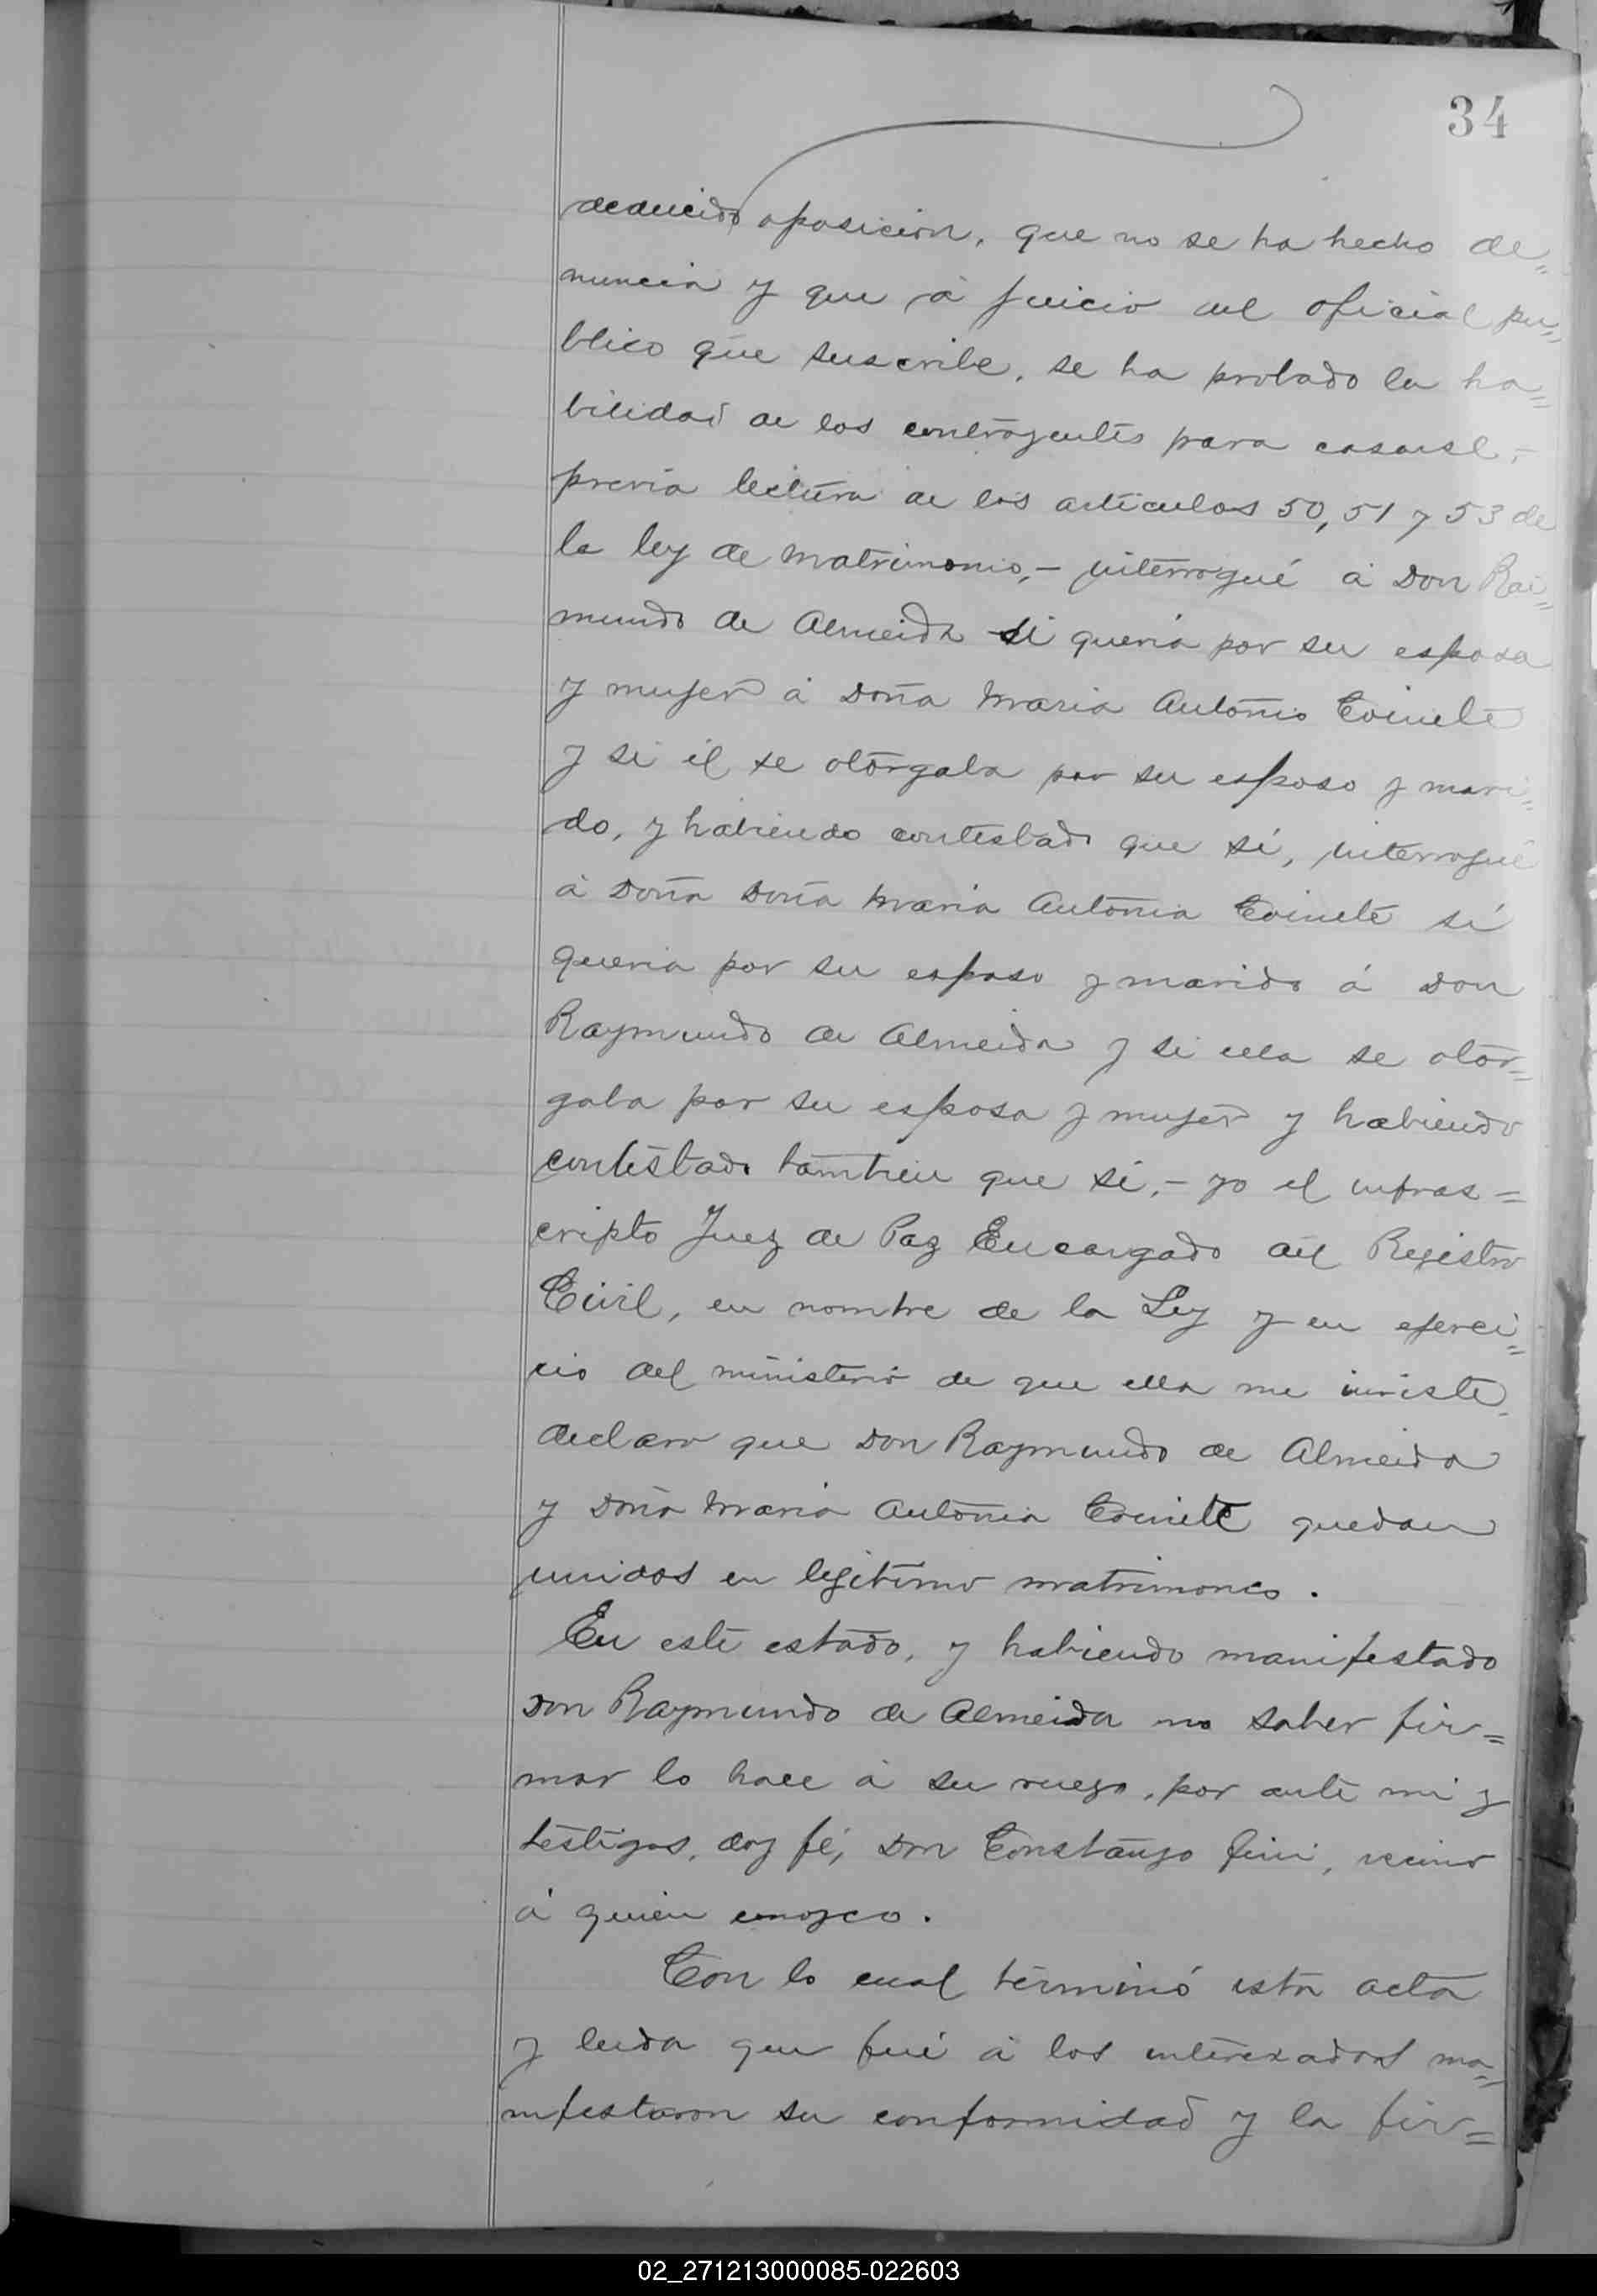 34
deducido oposicion, que no se ha hecho de=
nuncia y que á juicio del oficial pu=
blico que suscribe, se ha probado la ha=
bilidad de los contrayentes para casarse,-
previa lectura de los artículos 50, 51 y 53 de
la ley de matrimonio,- interrogué á Don Rai=
mundo de Almeida si queria por su esposa
y mujer á Doña Maria Antonio
y si él se otorgaba por su esposo y mari=
do, y habiendo contestado que sí, interrogué
á Doña Doña Maria Antonia si
queria por su esposo y marido á Don
Raymundo de Almeida y si ella se otor=
gaba por su esposa y mujer y habiendo
contestado tambien que sí,- yo el infras=
cripto Juez de Paz Encargado del Registro
Civil, en nombre de la Ley y en ejerci=
cio del ministerio de que ella me inviste,
declaro que Don Raymundo de Almeida
y Doña Maria Antonia quedan
unidos en legitimo matrimonio.
En este estado, y habiendo manifestado
Don Raymundo de Almeida no saber fir=
mar lo hace á su ruego, por ante mi y
testigos, doy fé, Don Constanzo, vecino
á quien conozco.
Con lo cual terminó esta acta
y leida que fué á los interezados ma=
nifestaron su conformidad y la fir=
02_271213000085-022603